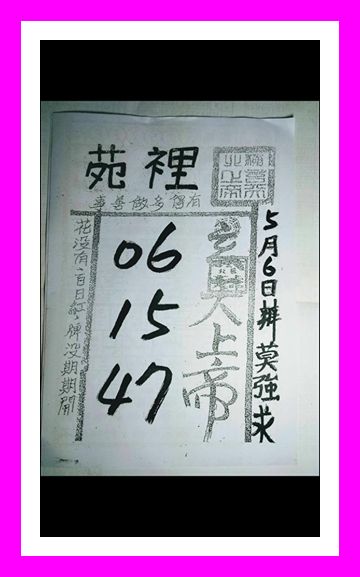 苑裡
5月6日辦莫強求
上帝
06
15
47
花沒有百日紅,牌沒期期開